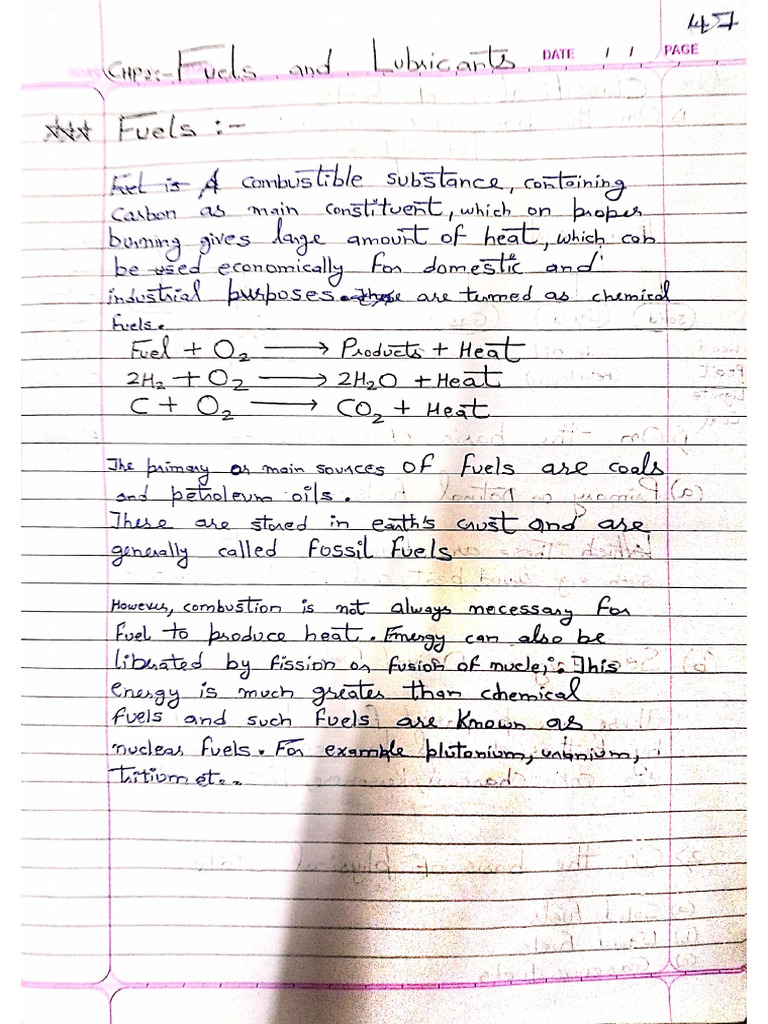 47
CHP2:- Fuels and Lubricants DATE / / PAGE
Fuels :-
Fuel is A combustible substance, containing
Carbon as main constituent, which on proper
burning gives large amount of heat, which can
be used economically for domestic and
industrial purposes. These are termed as chemical
fuels.
Fuel + O2 ⟶ Products + Heat
2H2 + O2 ⟶ 2H2O + Heat
C + O2 ⟶ CO2 + Heat
The primary or main sources of fuels are coals
and petroleum oils.
These are stored in earth's crust and are
generally called fossil fuels
However, combustion is not always necessary for
fuel to produce heat. Energy can also be
liberated by fission or fusion of nuclei. This
energy is much greater than chemical
fuels and such fuels are known as
nuclear fuels. For example plutonium, uranium,
tritium etc..